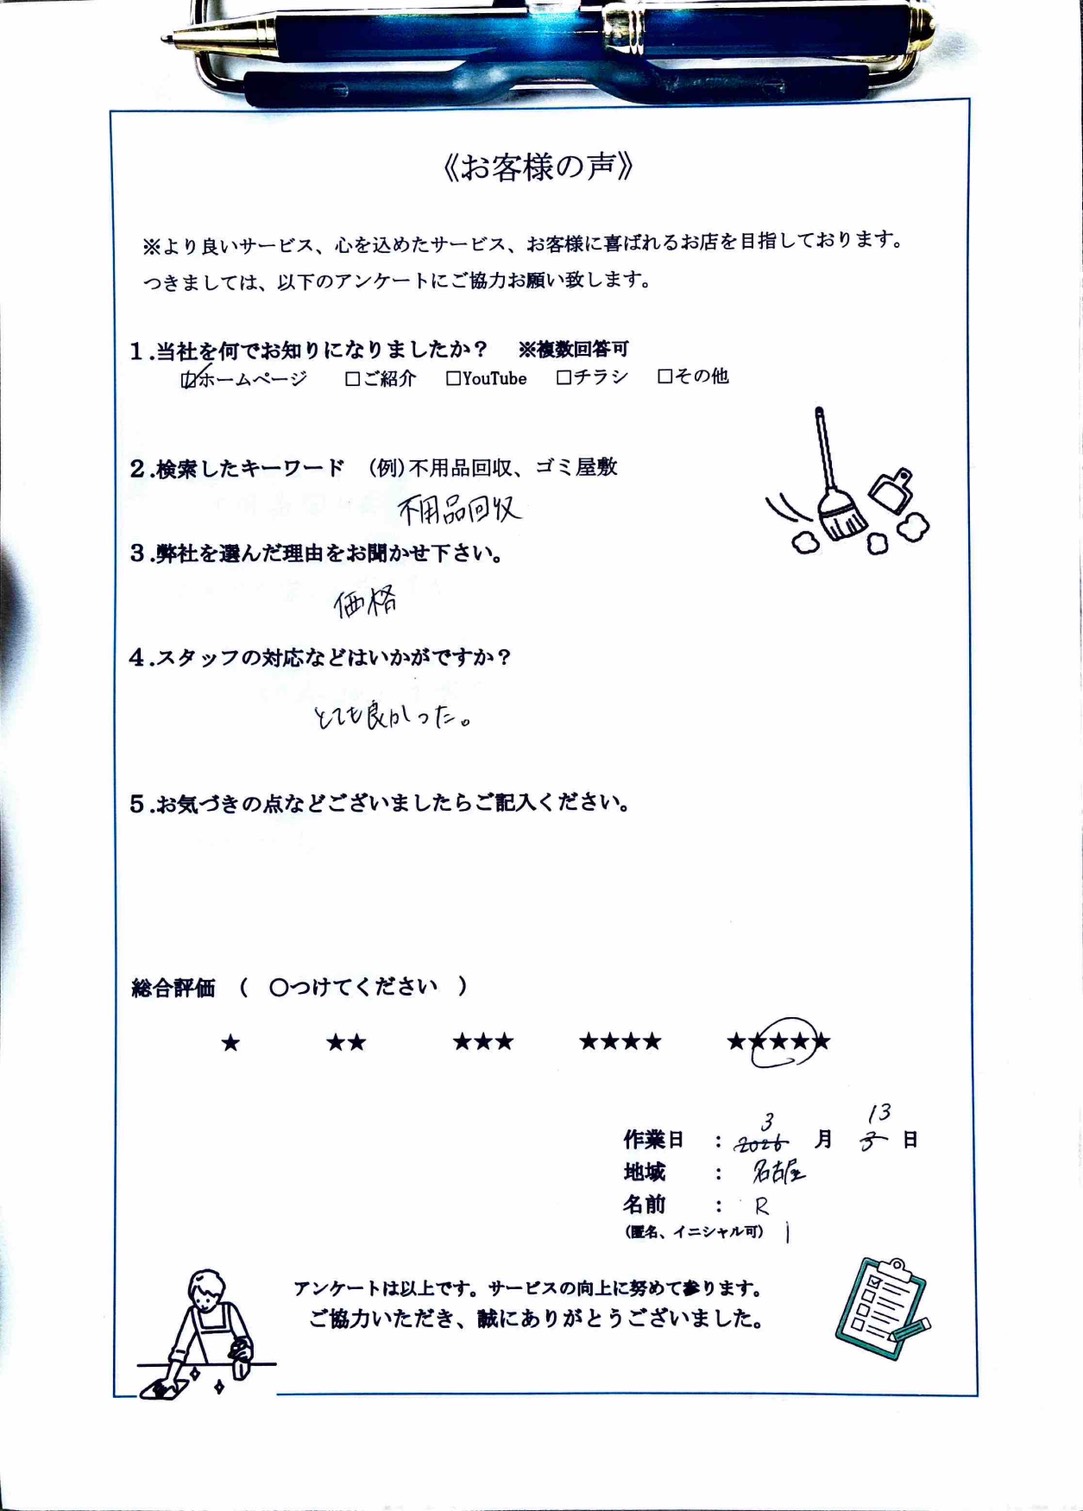 《お客様の声》
※より良いサービス、心を込めたサービス、お客様に喜ばれるお店を目指しております。
つきましては、以下のアンケートにご協力お願い致します。
1.当社を何でお知りになりましたか？ ※複数回答可
☑ホームページ □ご紹介 □YouTube □チラシ □その他
2.検索したキーワード (例)不用品回収、ゴミ屋敷
不用品回収
3.弊社を選んだ理由をお聞かせ下さい。
価格
4.スタッフの対応などはいかがですか？
とても良かった。
5.お気づきの点などございましたらご記入ください。
総合評価 ( 〇つけてください )
★ ★★ ★★★ ★★★★ ★★★★★
3 13
作業日 : 2026 月 3 日
地域 : 名古屋
名前 : R
(匿名、イニシャル可)
アンケートは以上です。サービスの向上に努めて参ります。
ご協力いただき、誠にありがとうございました。